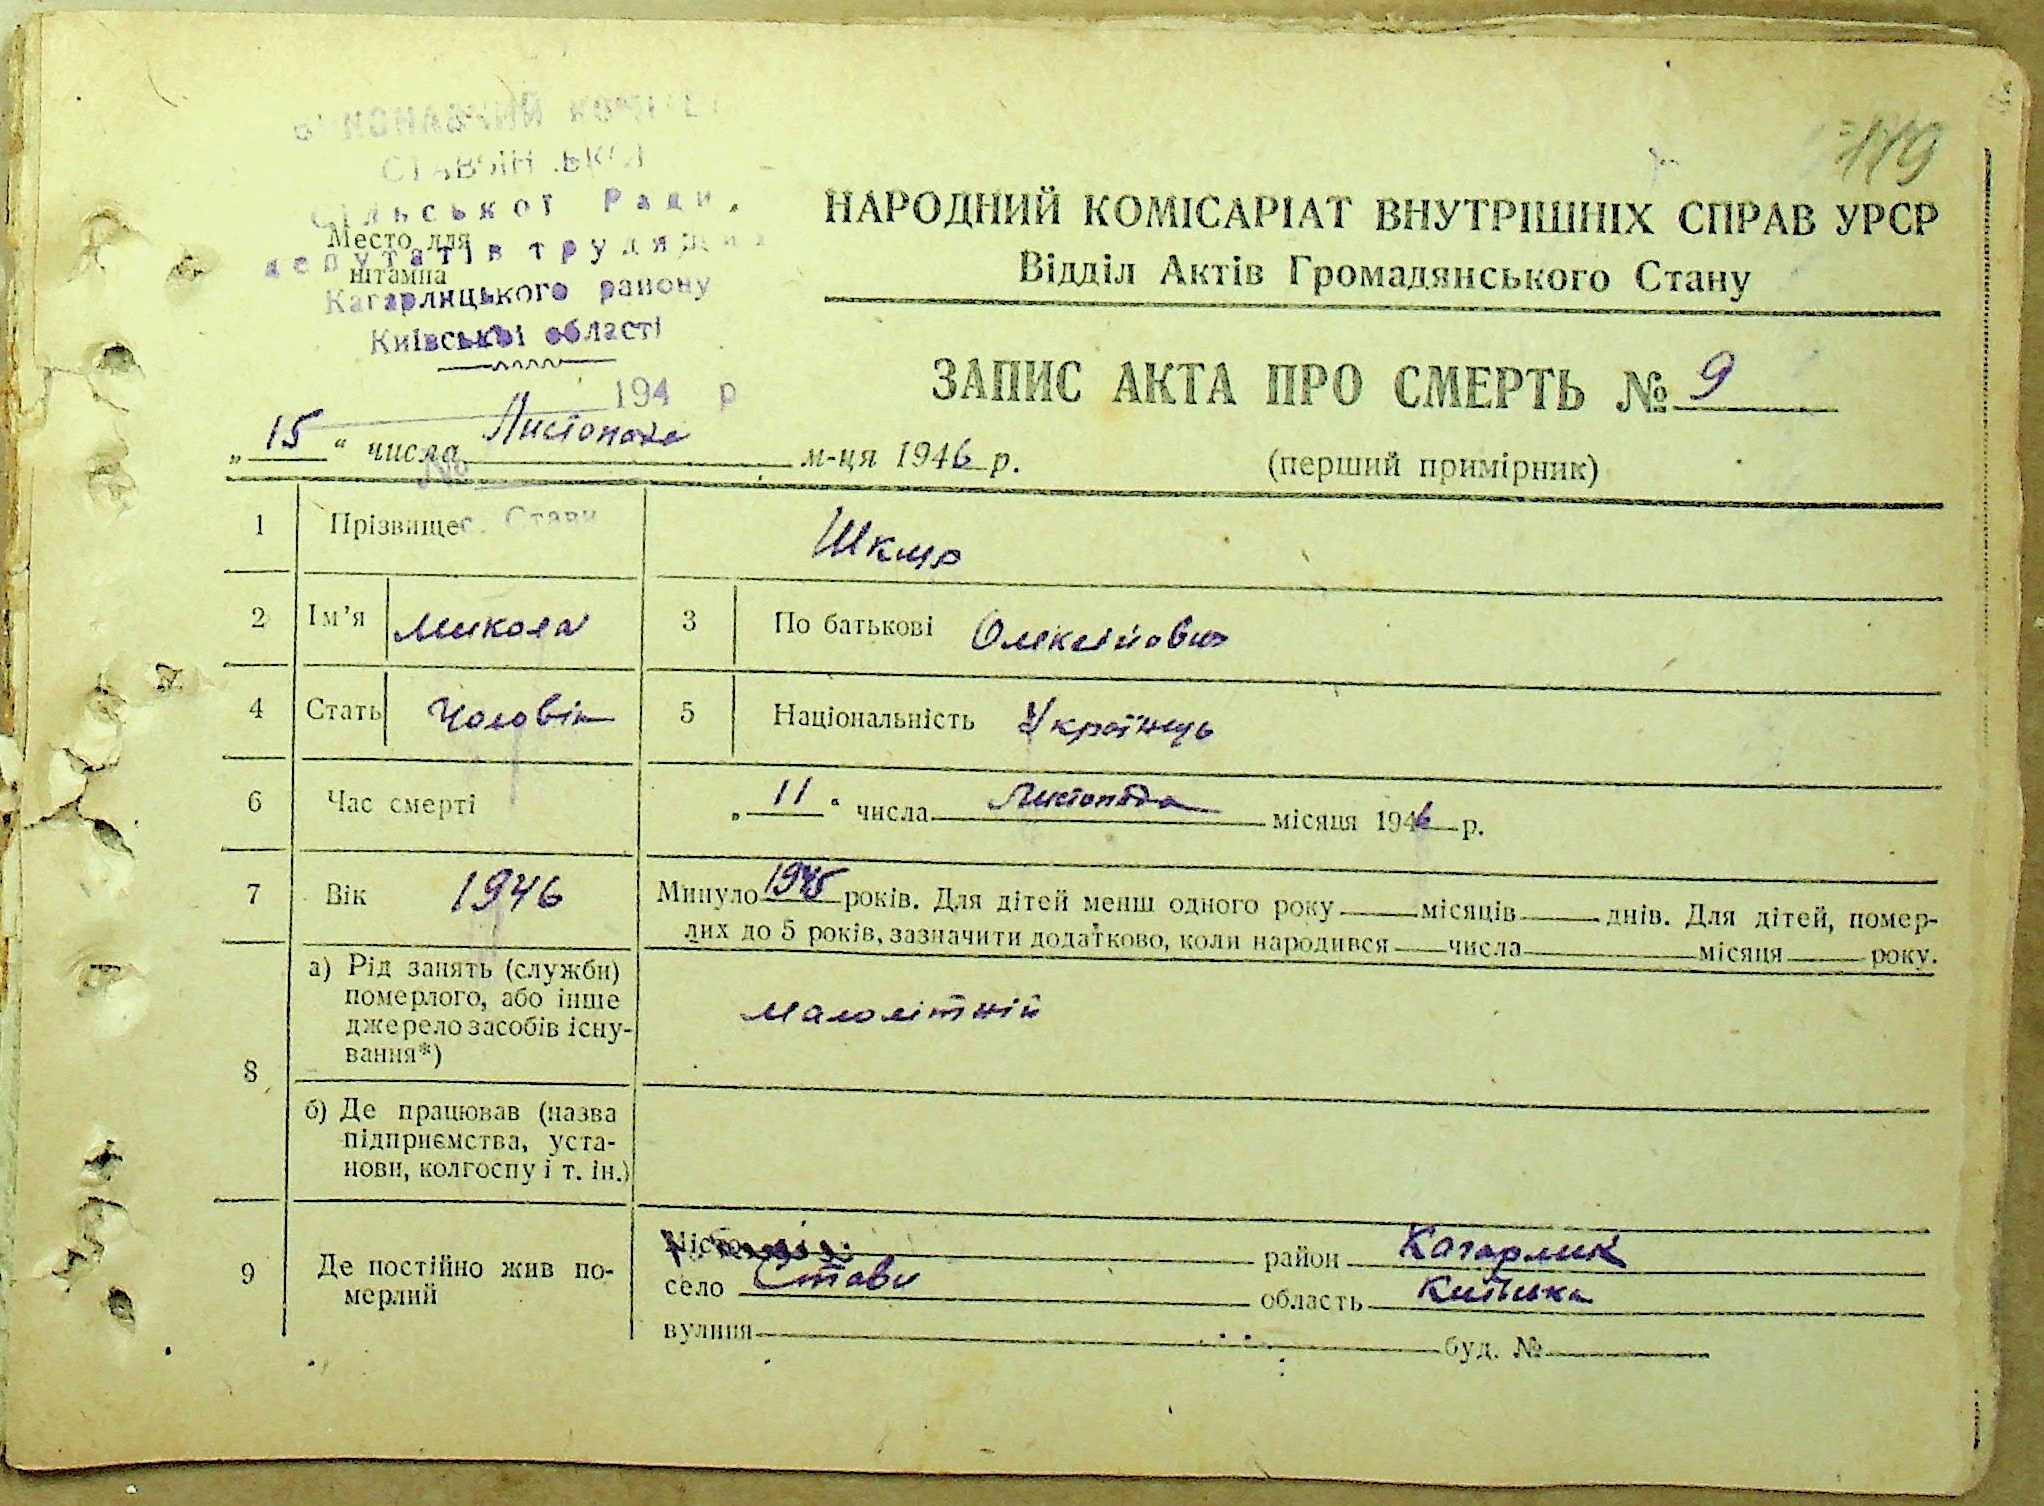 119
ВИКОНАВЧИЙ КОМІТЕТ
Сільської Ради
депутатів трудящих
Кагарлицького району
Київської області
194 р
№
с. Стави
Место для
штампа
НАРОДНИЙ КОМІСАРІАТ ВНУТРІШНІХ СПРАВ УРСР
Відділ Актів Громадянського Стану
ЗАПИС АКТА ПРО СМЕРТЬ № 9
„15“ числа Листопада м-ця 1946 р.
(перший примірник)
1 Прізвище
2 Ім’я Микола 3 По батькові Олексійович
4 Стать Чоловік 5 Національність Українець
6 Час смерті „11“ числа Листопада місяця 1946 р.
7 Вік 1946 Минуло 1945 років. Для дітей менш одного року місяців днів. Для дітей, помер-
лих до 5 років, зазначити додатково, коли народився числа місяця року.
8 а) Рід занять (служби)
померлого, або інше
джерело засобів існу-
вання*)
малолітній
б) Де працював (назва
підприємства, уста-
нови, колгоспу і т. ін.)
9 Де постійно жив по-
мерлий
Місто район Кагарлик
село Стави область Київська
вулиця буд. №